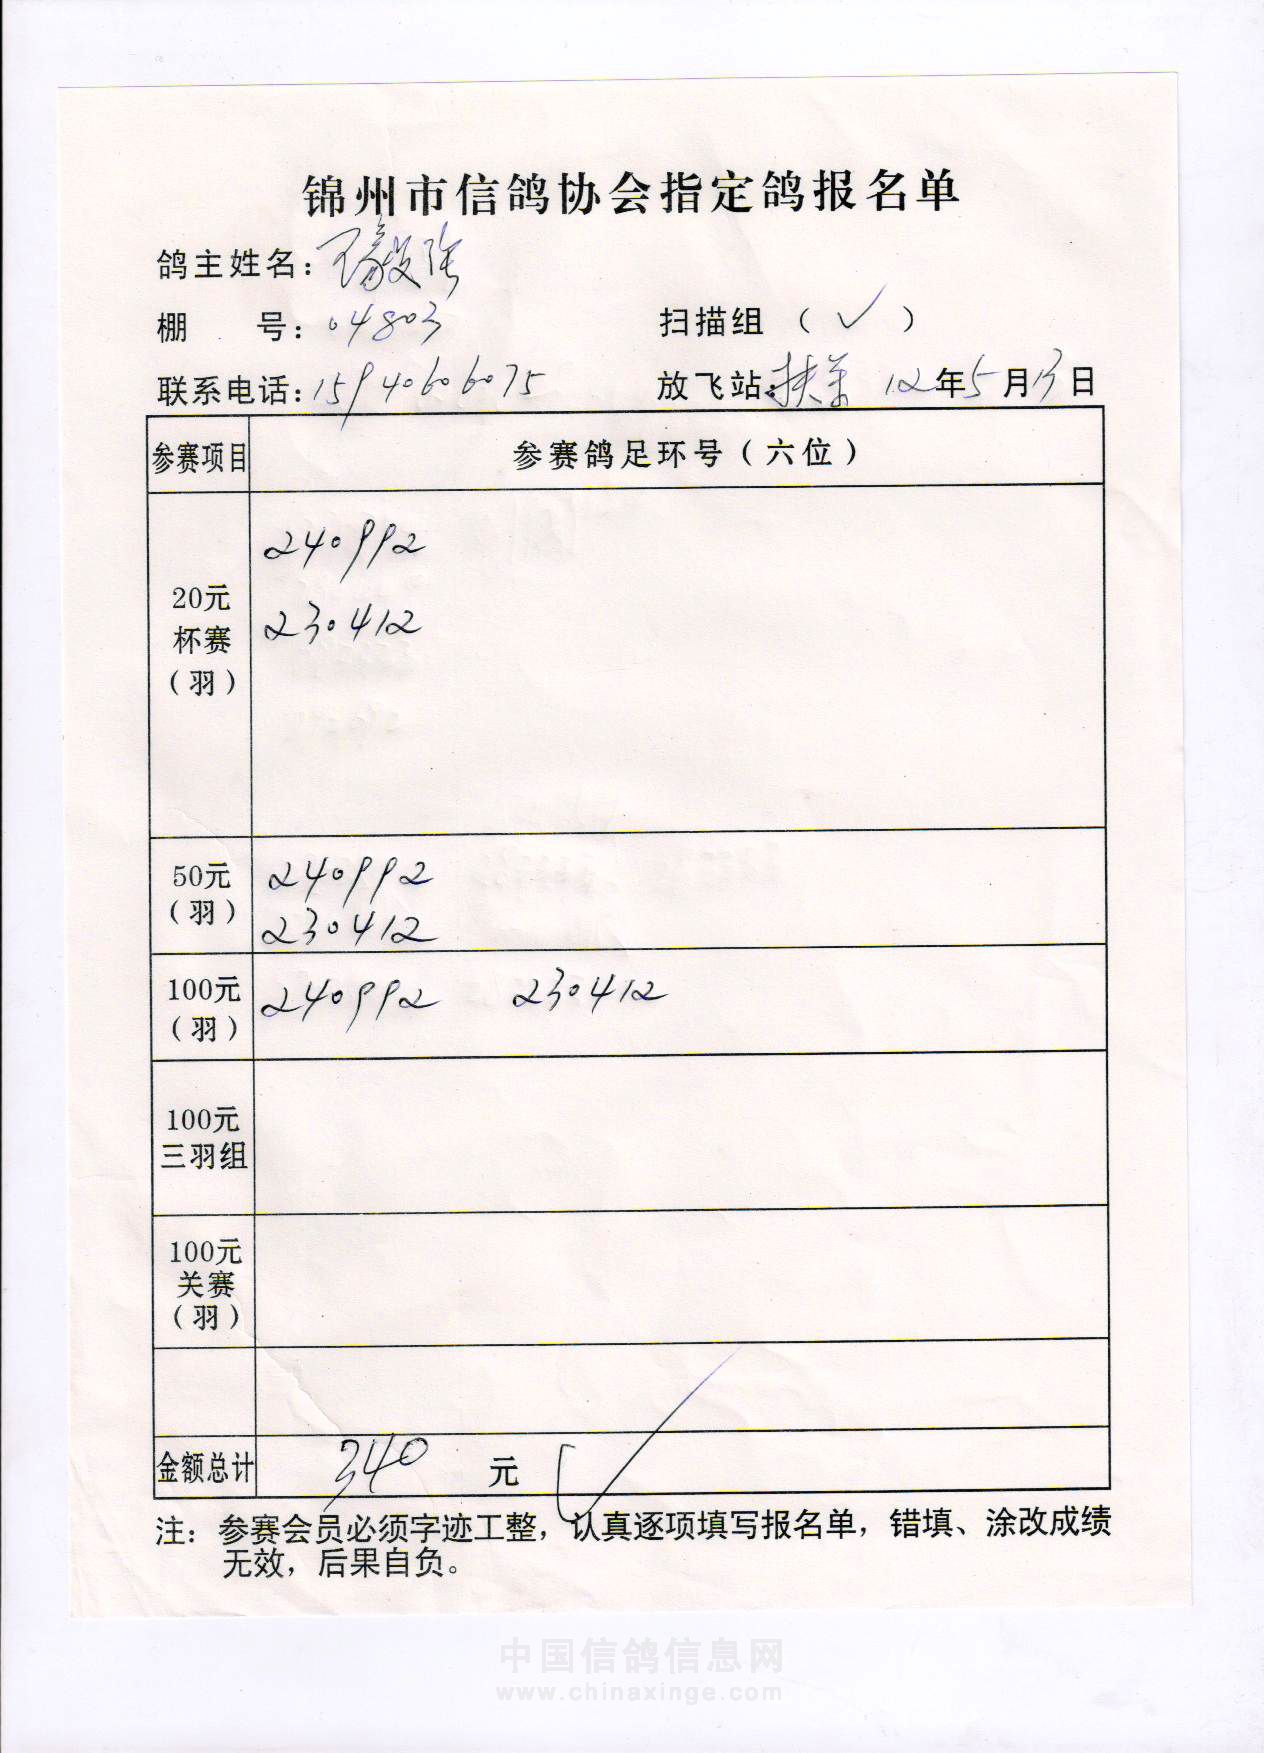 锦州市信鸽协会指定鸽报名单
鸽主姓名：
棚 号：04803 扫描组（✓）
联系电话：15940606075 放飞站：扶余 12年5月13日
参赛项目 参赛鸽足环号（六位）
240992
20元
杯赛
（羽）
230412
50元
（羽）
240992
230412
100元
（羽）
240992 230412
100元
三羽组
100元
关赛
（羽）
金额总计 340 元
注：参赛会员必须字迹工整，认真逐项填写报名单，错填、涂改成绩
无效，后果自负。
中国信鸽信息网
www.chinaxinge.com